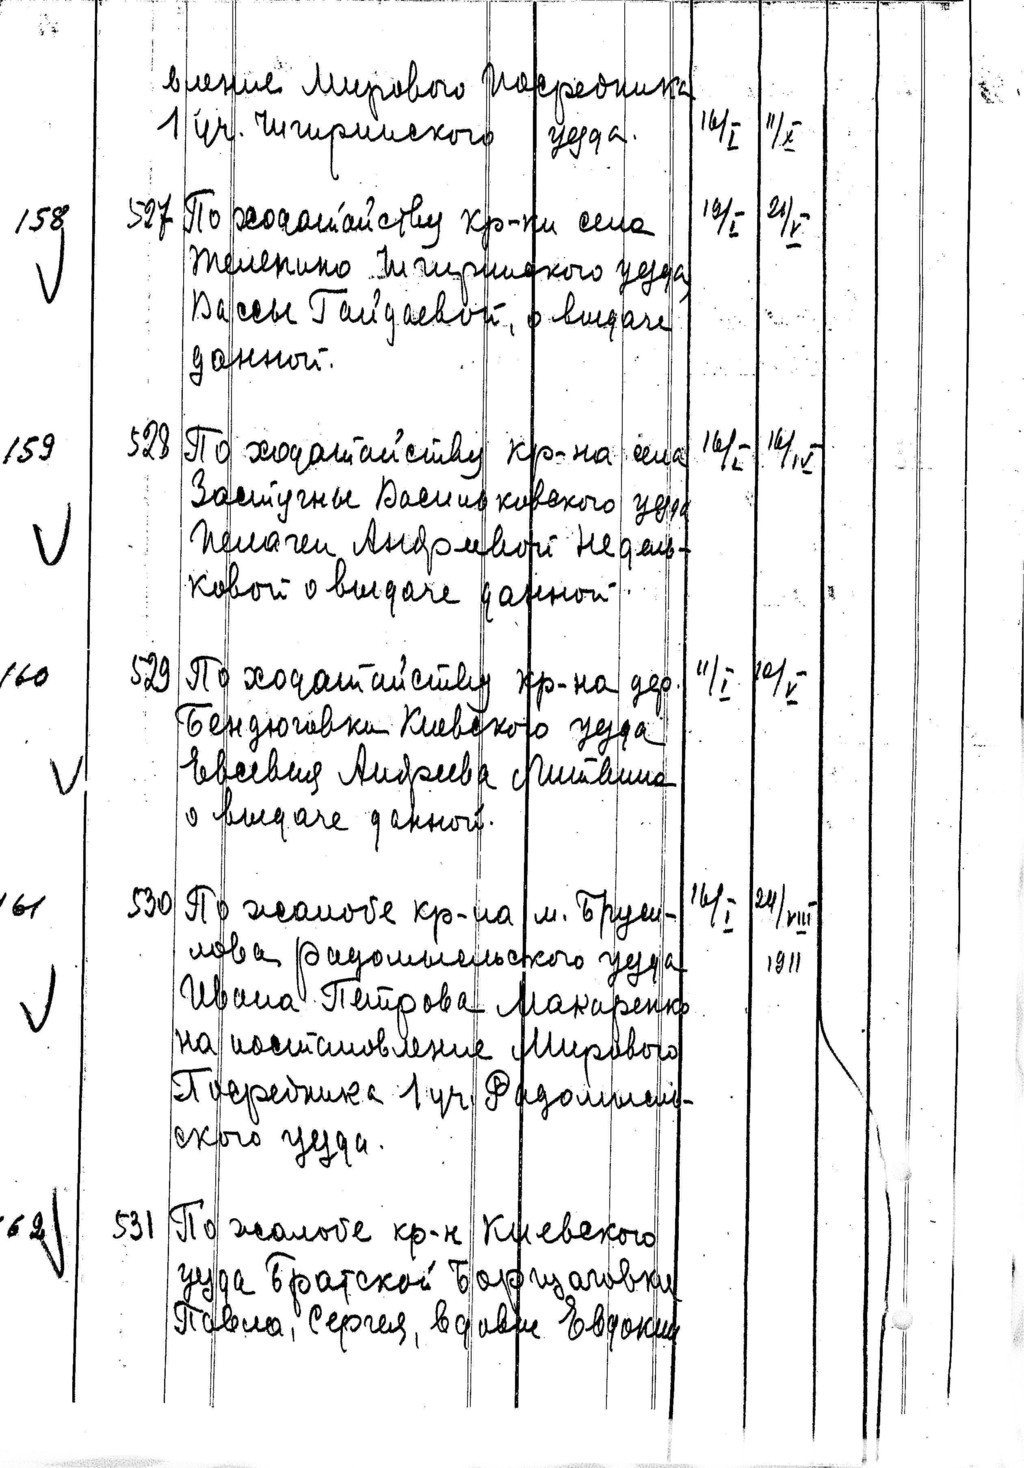 вление Мирового Посредника
1 уч. Чигиринского уезда. 16/I 11/X
158 527 По ходатайству кр-ки села 19/I 21/V
Телепино Чигиринского уезда,
Вассы Гайдаевой, о выдаче
данной.
159 528 По ходатайству кр-на села 16/I 16/IV
Застугны Васильковского уезда
Пелагеи Андреевой Недель-
ковой о выдаче данной.
160 529 По ходатайству кр-на дер. 11/I 10/V
Бендюговки Киевского уезда
Евсевия Андреева Литвина
о выдаче данной.
161 530 По жалобе кр-на м. Бруси- 16/I 24/VIII
лова, радомысльского уезда 1911
Ивана Петрова Макаренко
на постановление Мирового
Посредника 1 уч. Радомысль-
ского уезда.
62 531 По жалобе кр-н Киевского
уезда Братской Борщаговки
Павла, Сергея, вдовы Евдокии